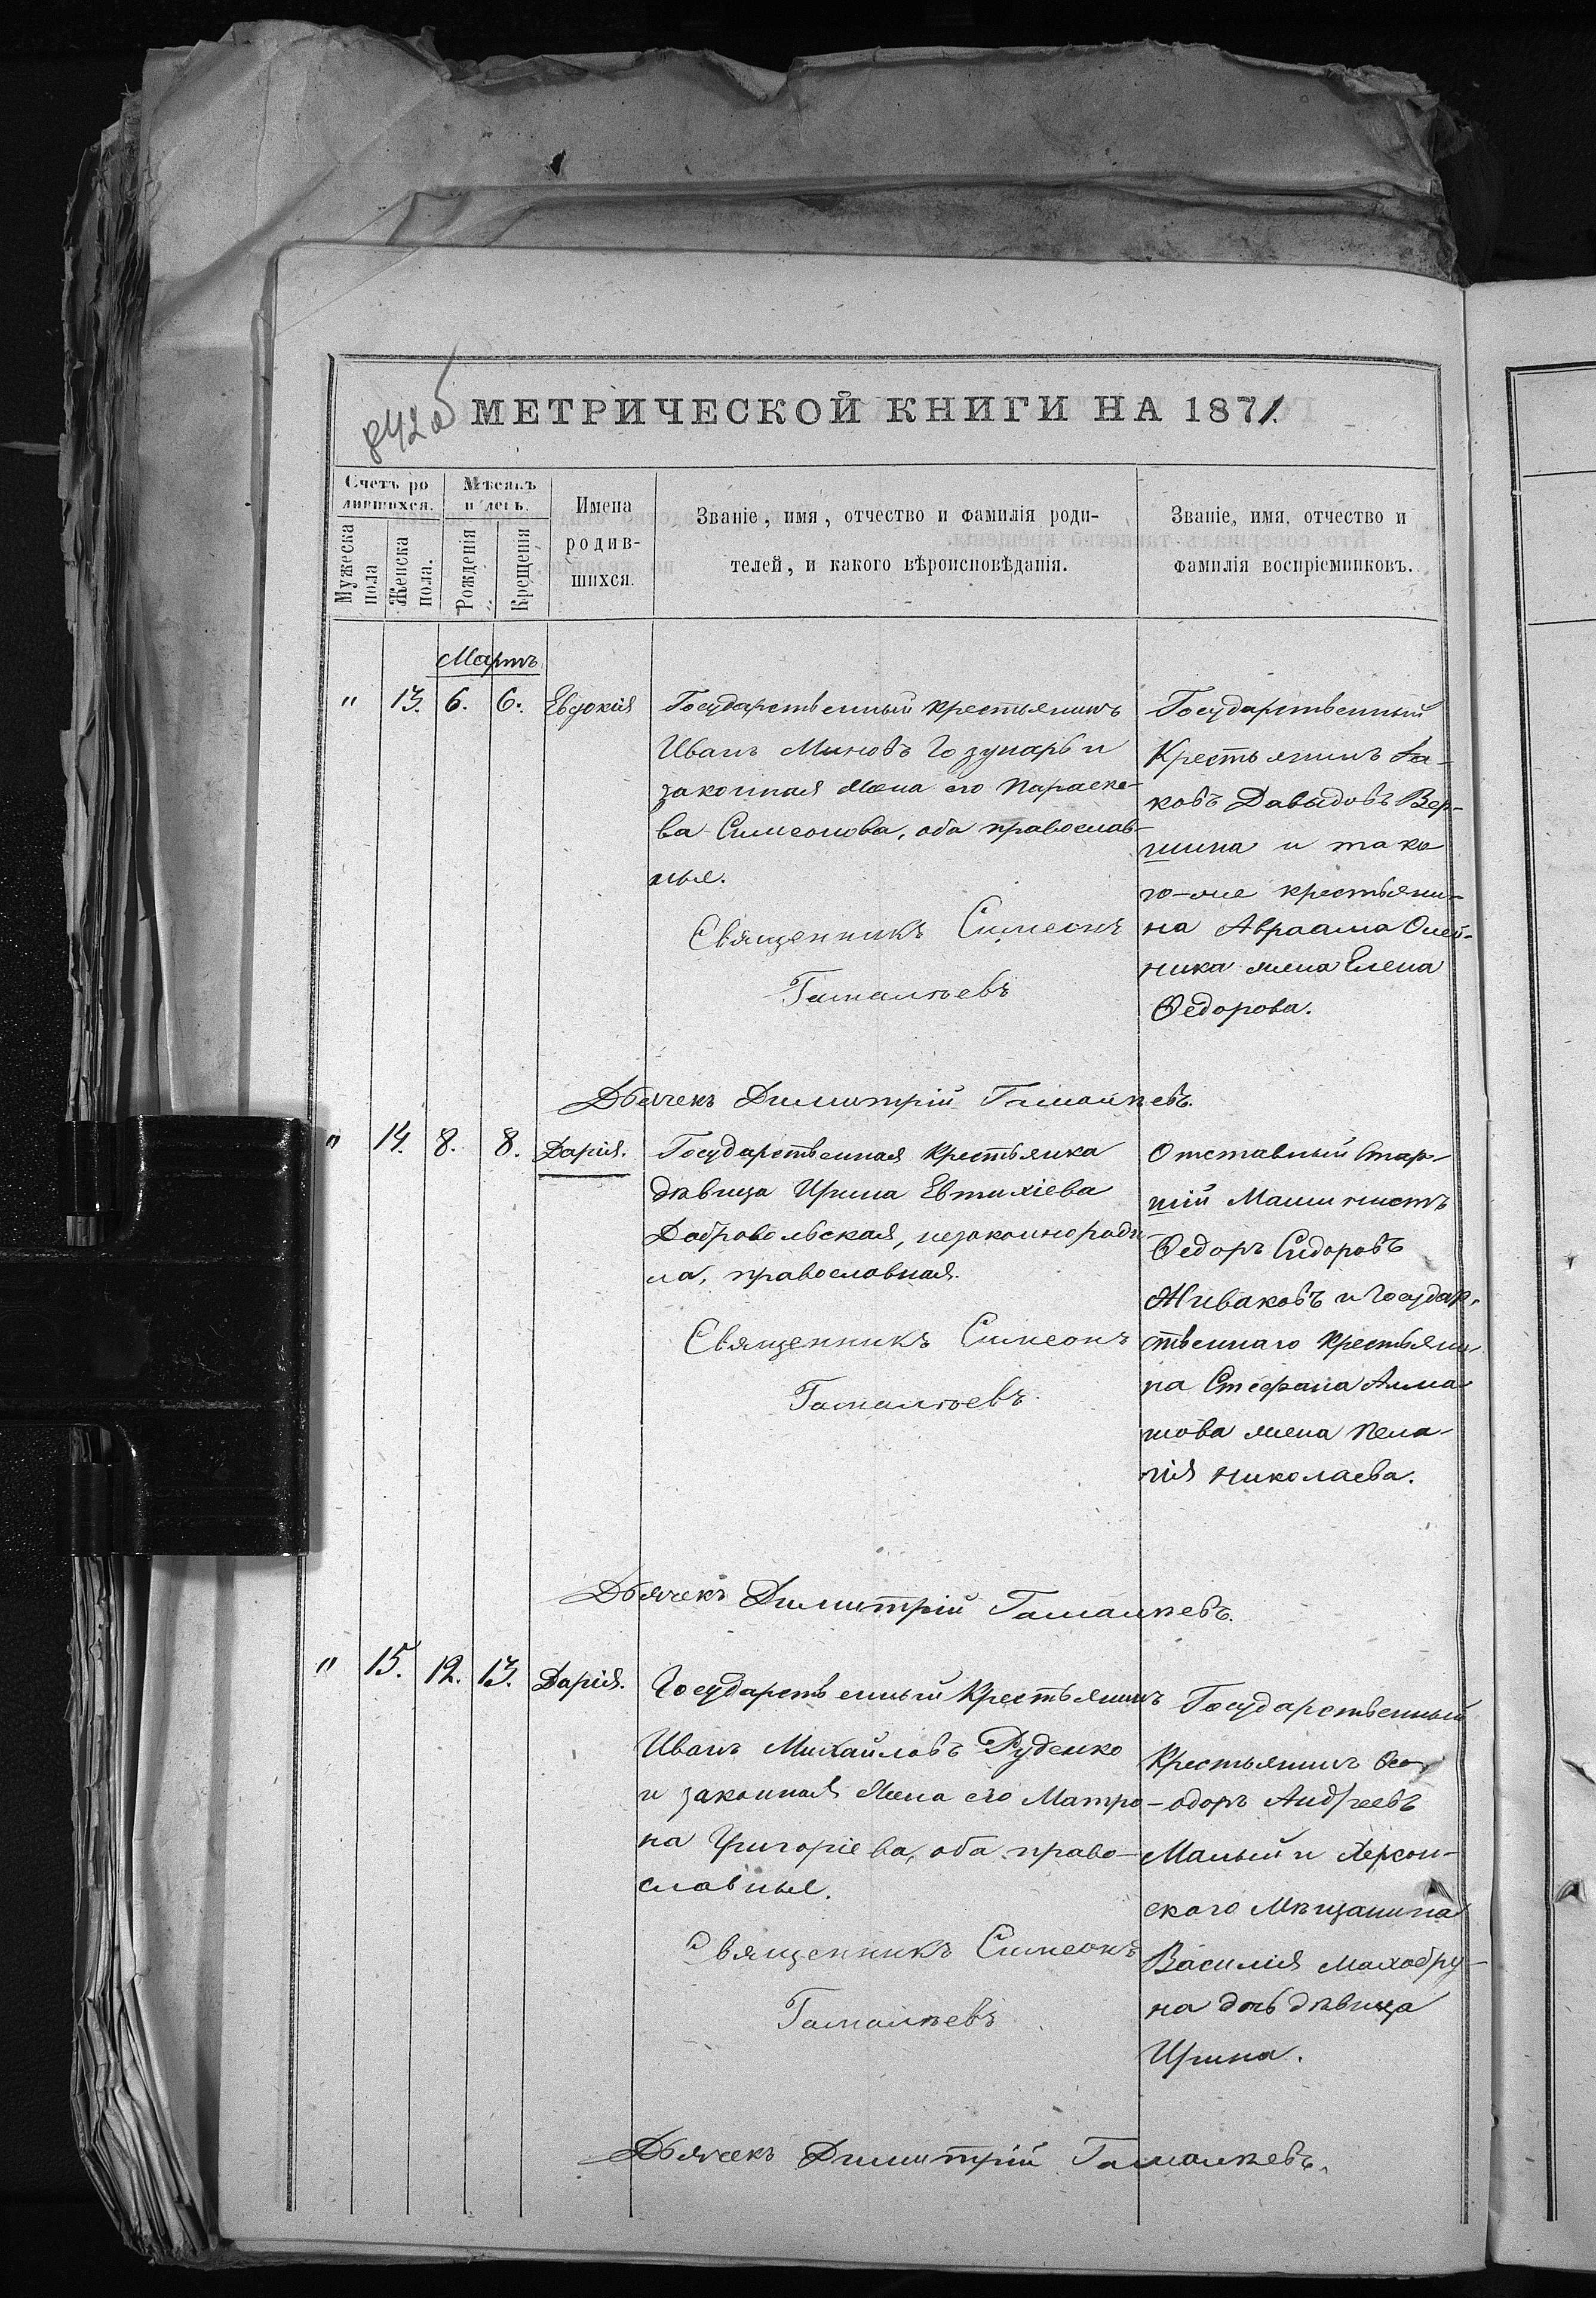 842 об
МЕТРИЧЕСКОЙ КНИГИ НА 1871.
Счетъ ро
дившихся.
Мѣсяцъ
и день.
Мужеска
пола
Женска
пола.
Рожденія
Крещенія
Имена
родив-
шихся.
Званіе, имя, отчество и фамилія роди-
телей, и какого вѣроисповѣданія.
Званіе, имя, отчество и
фамилія воспріемниковъ.
Мартъ
" 13. 6. 6. Евдокія
Государственный крестьянинъ
Иванъ Миновъ Гозунарь и
законная жена его Параске-
ва Симеонова, оба православ-
ные.
Священникъ Симеонъ
Гамалѣевъ
Государственный
Крестьянинъ Іа-
ковъ Давыдовъ Вер-
шина и тако
го-же крестьяни-
на Авраама Олей-
ника жена Елена
Ѳедорова.
Дьячекъ Димитрій Гамалѣевъ.
" 14. 8. 8. Дарія.
Государственная крестьянка
дѣвица Ирина Евтихіева
Добровольская, незаконнороди
ла, православная.
Священникъ Симеонъ
Гамалѣевъ
Отставный Стар-
шій Машинистъ
Ѳедоръ Сидоровъ
Живаковъ и Государ-
ственнаго Крестьяни-
на Стефана Алма
шова жена Пела-
гія Николаева.
Дьячекъ Димитрій Гамалѣевъ.
" 15. 12. 13. Дарія.
Государственный Крестьянинъ
Иванъ Михайловъ Руденко
и законная жена его Матро-
на Григоріева, оба право-
славные.
Священникъ Симеонъ
Гамалѣевъ
Государственный
Крестьянинъ Ѳео
-доръ Андреевъ
Малый и Херсон-
скаго Мѣщанина
Василія Махобру-
на дочь дѣвица
Ирина.
Дьячекъ Димитрій Гамалѣевъ.